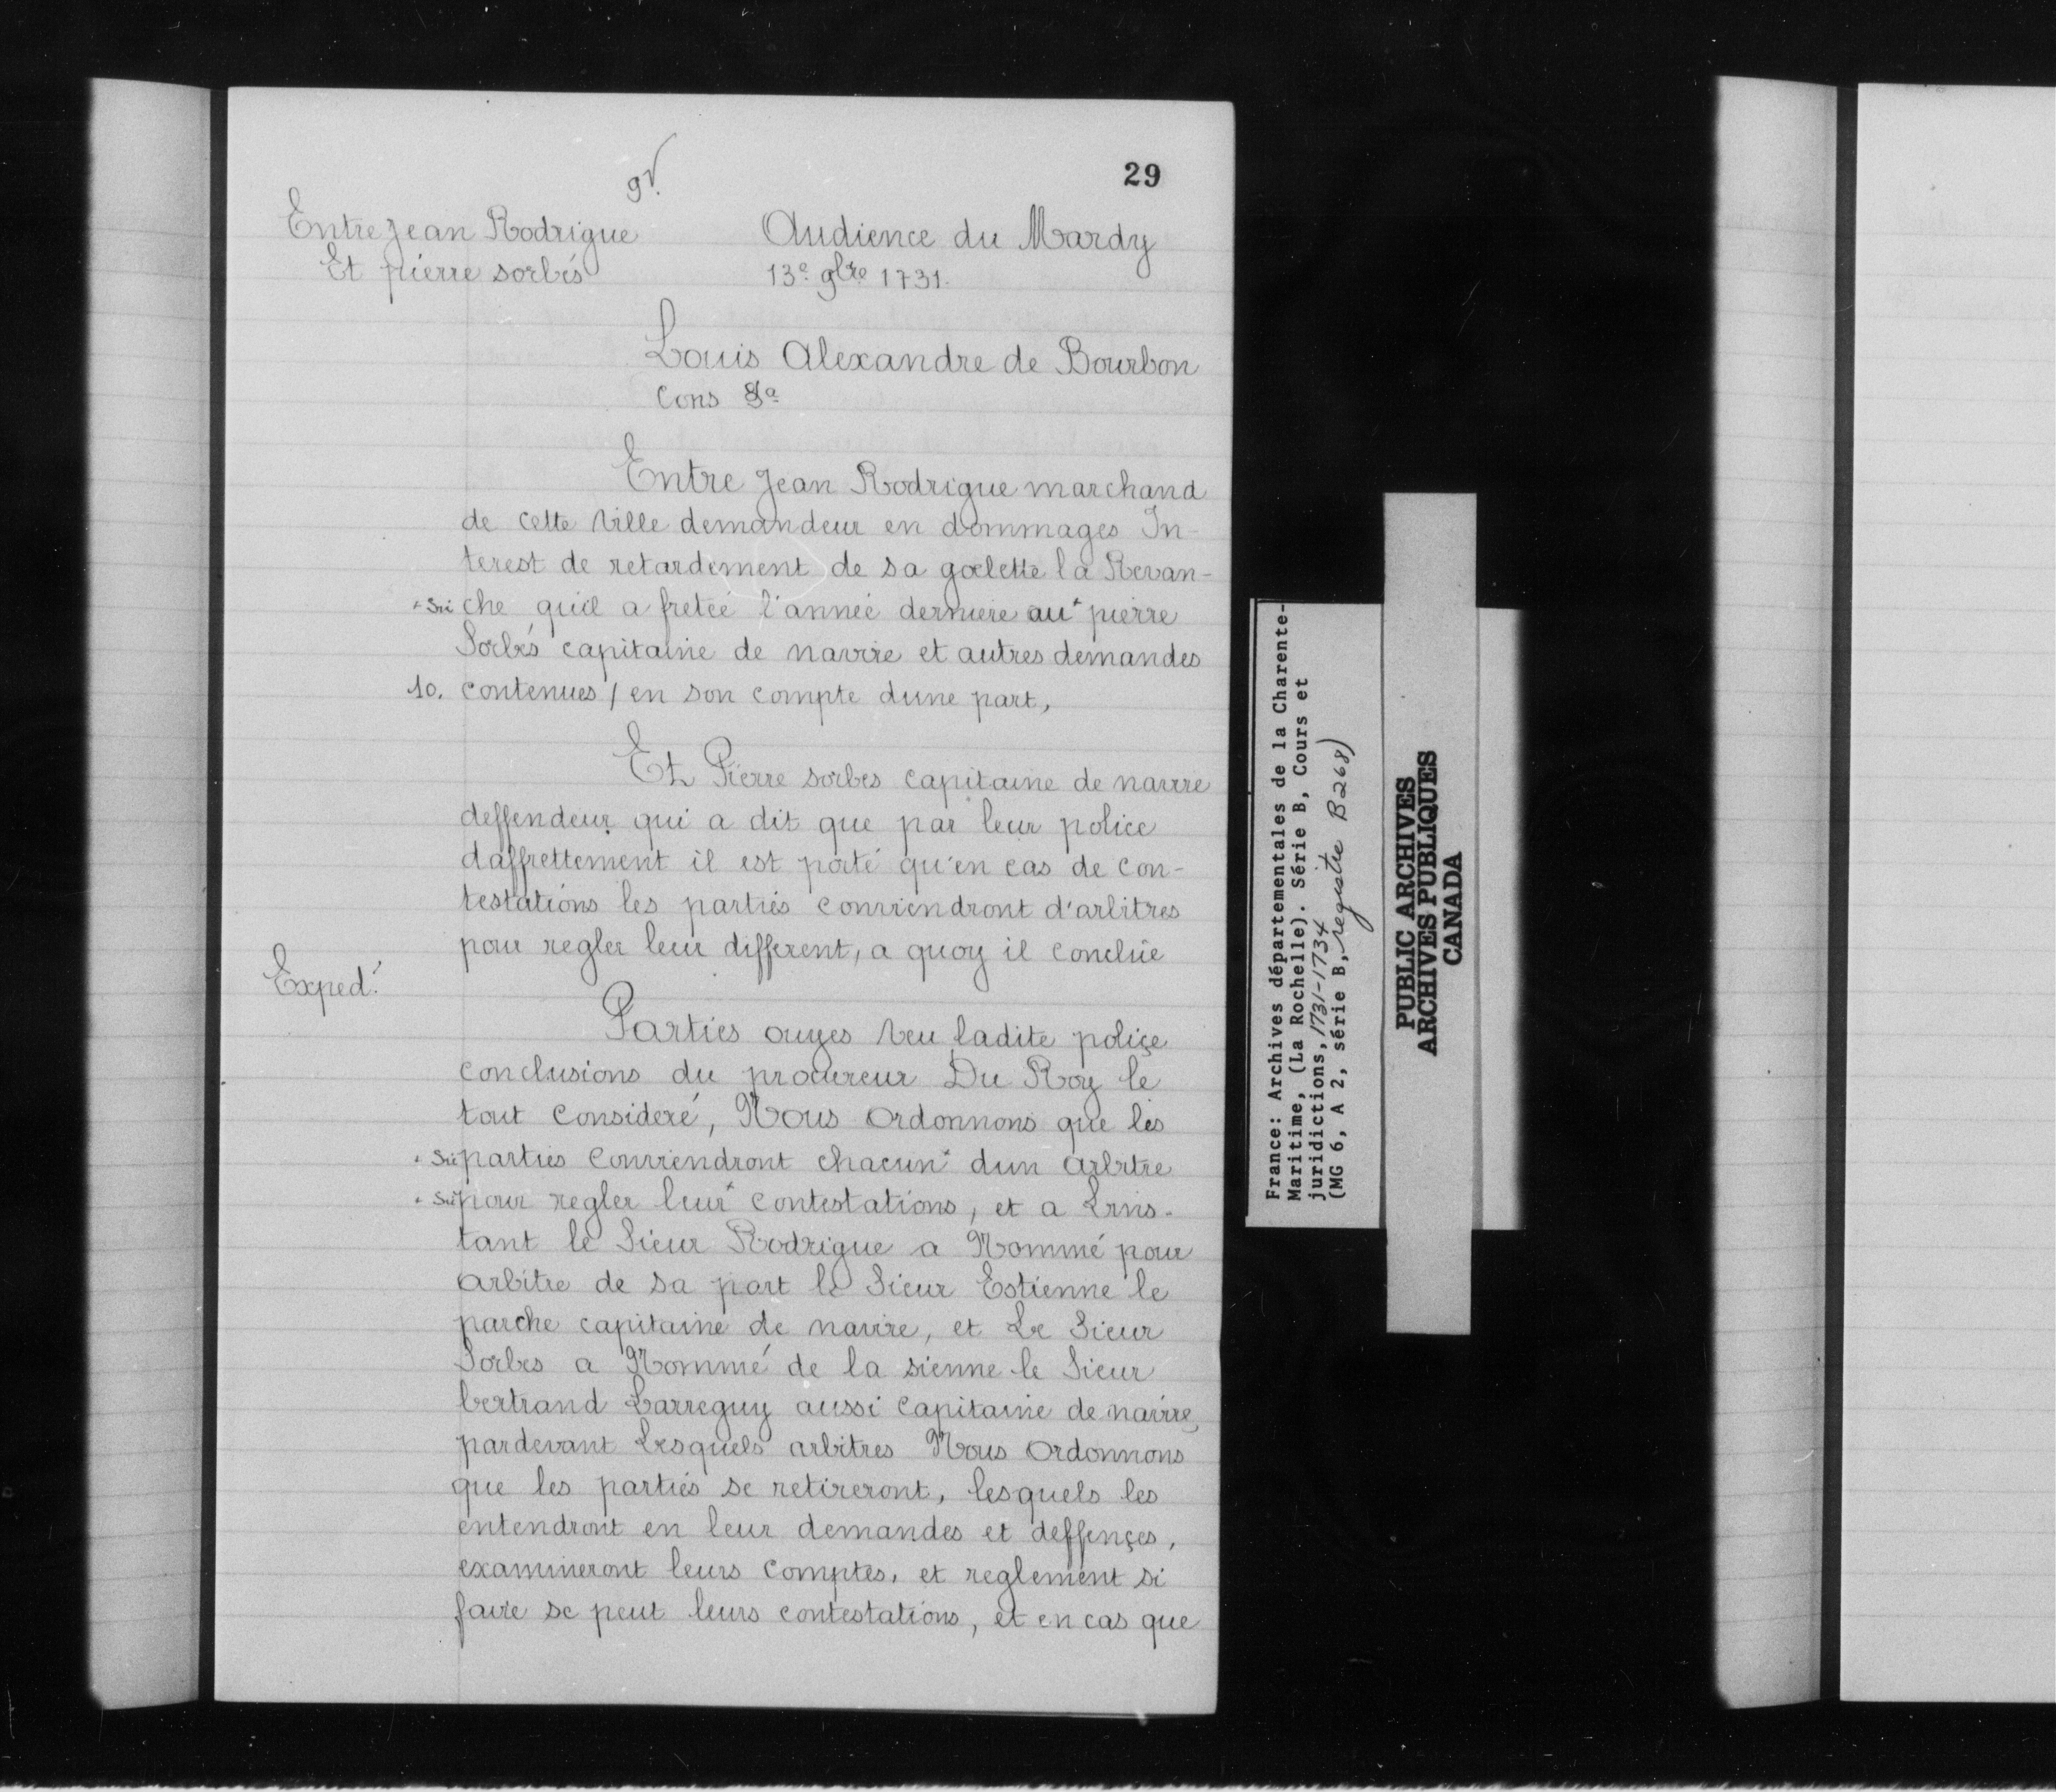 29
9v.
Entre Jean Rodrigue
Et pierre sorbés
Audience du Mardy
13e 9bre 1731.
Louis Alexandre de Bourbon
Cons &a
Entre Jean Rodrigue marchand
de cette ville demandeur en dommages In-
terest de retardement de sa goelette la Revan-
+ Sic che quil a fretéé l'anneé derniere au+ pierre
Sorbés capitaine de navire et autres demandes
10. contenues / en son compte dune part,
Et Pierre sorbes capitaine de navire
deffendeur qui a dit que par leur police
daffrettement il est porté qu'en cas de con-
testations les parties conviendront d'arbitres
pour regler leur different, a quoy il conclüe
Exped.
Parties ouyes veu ladite poliçe
conclusions du procureur Du Roy le
tout consideré, Nous ordonnons que les
+ Sic parties conviendront chacun+ dun arbitre
+ Sic pour regler leur+ contestations, et a Lins-
tant le Sieur Rodrigue a Nommé pour
arbitre de sa part le Sieur Estienne le
parche capitaine de navire, et Le Sieur
Sorbes a Nommé de la sienne le Sieur
bertrand Larreguy aussi capitaine de navire,
pardevant Lesquels arbitres Nous ordonnons
que les parties se retireront, lesquels les
entendront en leur demandes et deffençes,
examineront leurs comptes, et reglement si
faire se peut leurs contestations, et en cas que
France: Archives départementales de la Charente-
Maritime, (La Rochelle). Série B, Cours et
juridictions, 1731-1734
(MG 6, A 2, série B, registre B268)
PUBLIC ARCHIVES
ARCHIVES PUBLIQUES
CANADA